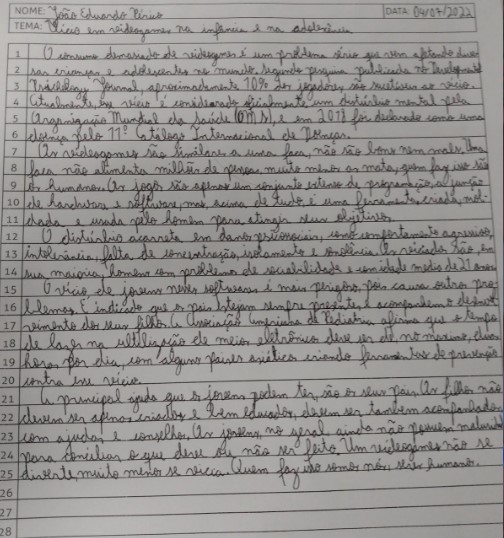 NOME: João Eduardo Pírico DATA: 04/07/2022
TEMA: Vício em videogames na infância e na adolescência
1 O consumo demasiado de videogames é um problema sério que vem afetando diver
2 sas crianças e adolescentes no mundo. Segundo pesquisa publicada no Development
3 Journal, aproximadamente 10% dos jogadores, são suscetíveis ao vício.
4 Atualmente, esse vício é considerado oficialmente um distúrbio mental pela
5 Organização Mundial da Saúde (OMS), e em 2018 foi declarado como uma
6 doença pelo 11° Catálogo Internacional de Doenças.
7 Os videogames são similares a uma faca, não são bons nem males. Uma
8 faca não alimenta milhões de pessoas, muito menos as mata, quem faz isso são
9 os humanos. Os jogos são apenas um conjunto extenso de programação, a junção
10 de hardware e software, mas, acima de tudo, é uma ferramenta criada, mol-
11 dada e usada pelo homem para atingir seus objetivos.
12 O distúrbio acarreta em danos psicossociais, como comportamento agressivo,
13 intolerância, falta de concentração, isolamento e sonolência. Os viciados são, em
14 sua maioria, homens com problema de sociabilidade e com idade média de 21 anos
15 O vício de jovens nesses softwares é mais perigoso, pois causa outros pro
16 blemas. É indicado que os pais estejam sempre presente, e acompanhem o desenvol
17 vimento dos seus filhos. A Associação de Pediatria afirma que o tempo
18 de lazer na ultilização de meios eletrônicos deve ser de no máximo, duas
19 horas por dia, com alguns países asiáticos criando ferramentas de prevenção
20 contra esse vício.
21 A principal ajuda que os jovens podem ter, são os seus pais. Os filhos não
22 devem ser apenas criados e bem educados, devem ser também acompanhados
23 com ajudas e conselhos. Os jovens, no geral ainda não possuem maturidade
24 para conciliar o que deve ou não ser feito. Um videogame não se
25 diverte, muito menos se vicia. Quem faz isso somos nós, seres humanos.
26
27
28